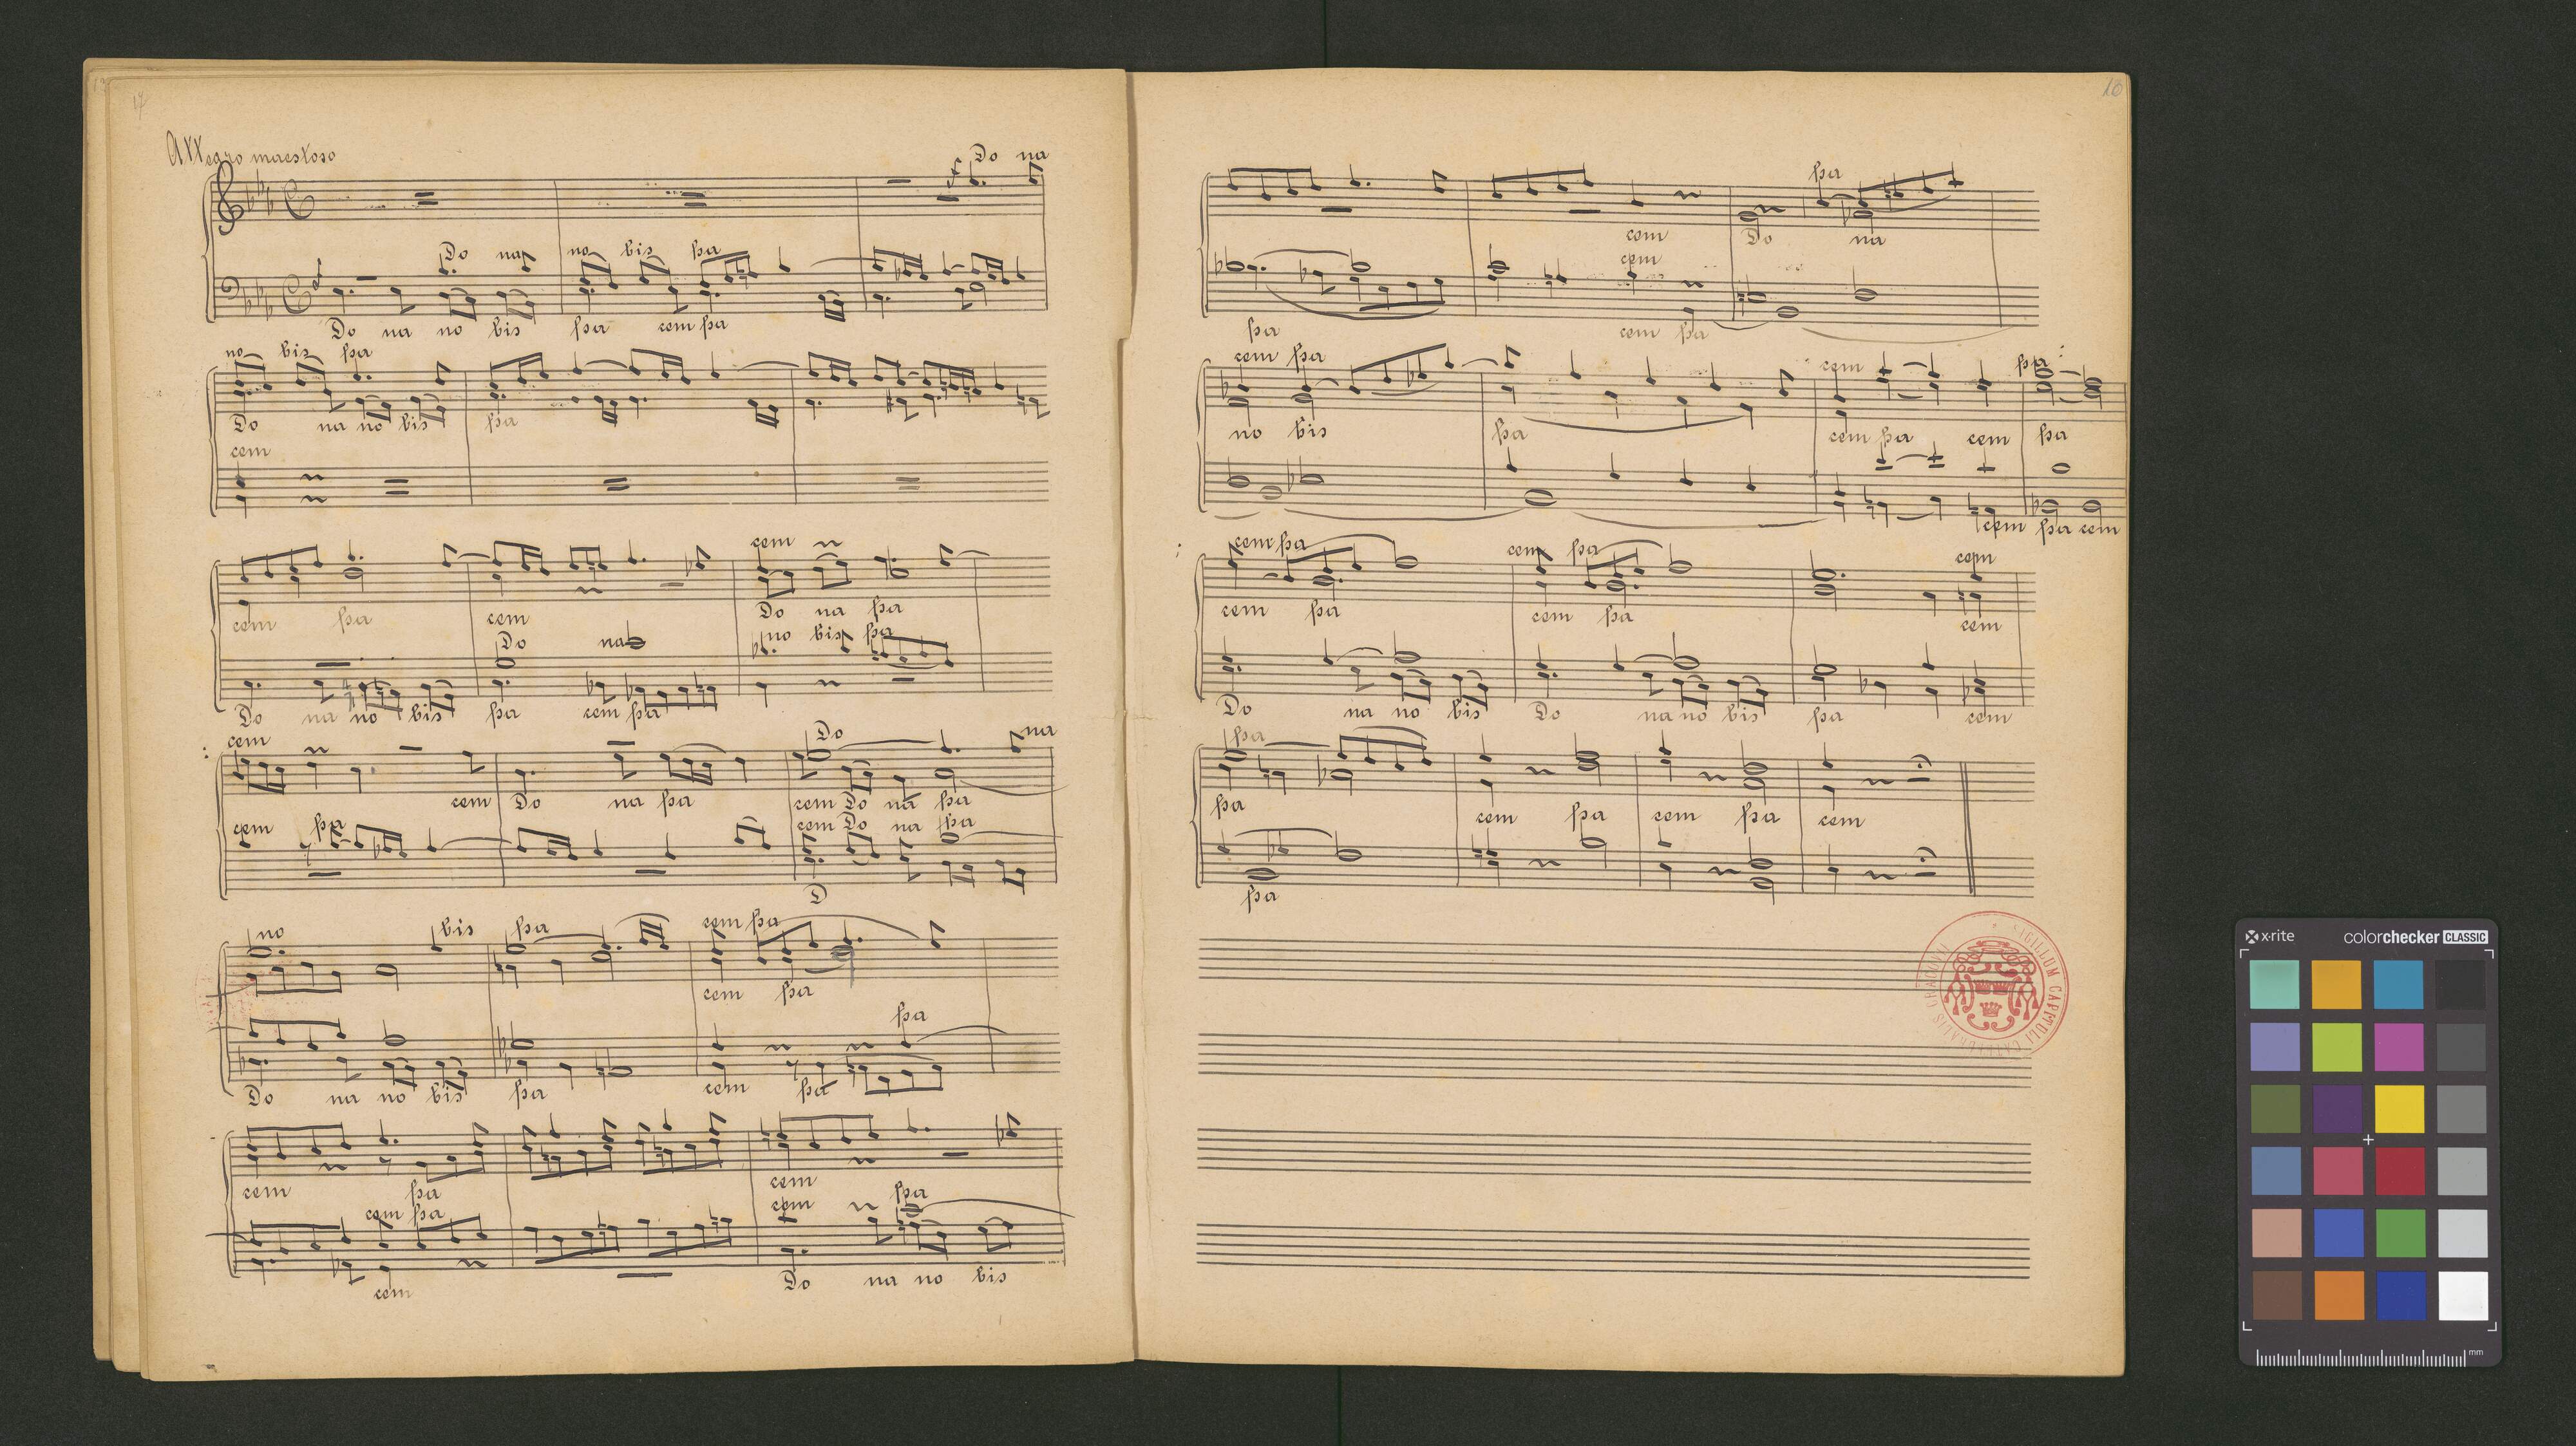 17
Allegro maestoso
Do na
Do na no bis pa
Do na no bis pa cem pa
no bis pa
Do na no bis pa
cem
cem pa cem
Do na
Do na no bis pa cem pa
cem
Do na pa
no bis pa
cem
cem Do na pa
cem pa
Do na
cem Do na pa
cem Do na pa
D
no bis pa cem pa
cem pa
pa
Do na no bis pa cem pa
cem pa
cem pa
cem
cem
cem pa
Do na no bis
18
pa
cem Do na
cem
pa cem pa
cem pa cem pa
no bis pa cem pa cem pa
cem pa cem
cem pa cem pa cem
cem pa cem pa cem
Do na no bis Do na no bis pa cem
pa
pa cem pa cem pa cem
pa
SIGILLUM CAPITULI CATHEDRALIS CRACOVI
x-rite
colorchecker CLASSIC
mm